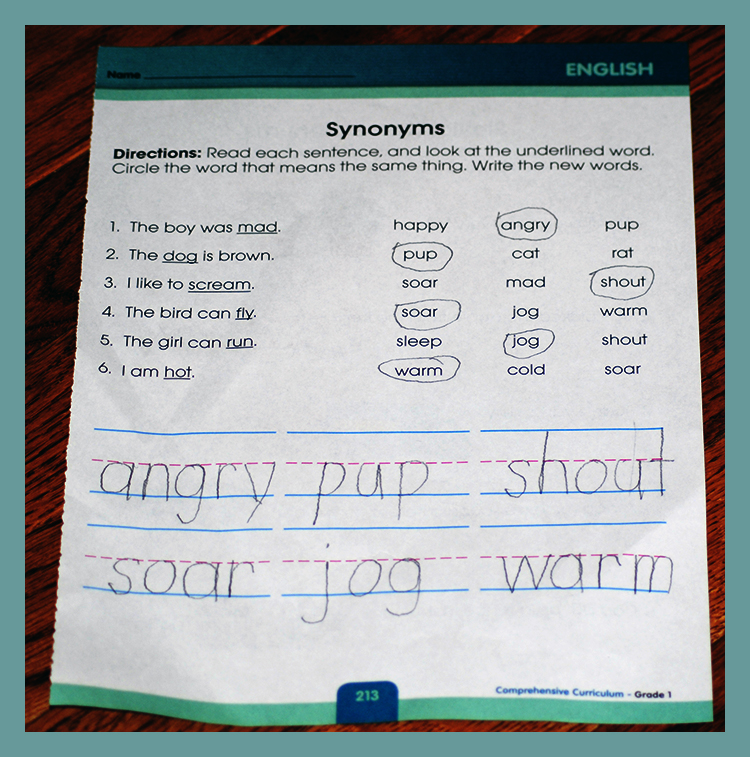 Name
ENGLISH
Synonyms
Directions: Read each sentence, and look at the underlined word.
Circle the word that means the same thing. Write the new words.
1. The boy was mad. happy angry pup
2. The dog is brown. pup cat rat
3. I like to scream. soar mad shout
4. The bird can fly. soar jog warm
5. The girl can run. sleep jog shout
6. I am hot. warm cold soar
angry pup shout
soar jog warm
213
Comprehensive Curriculum - Grade 1